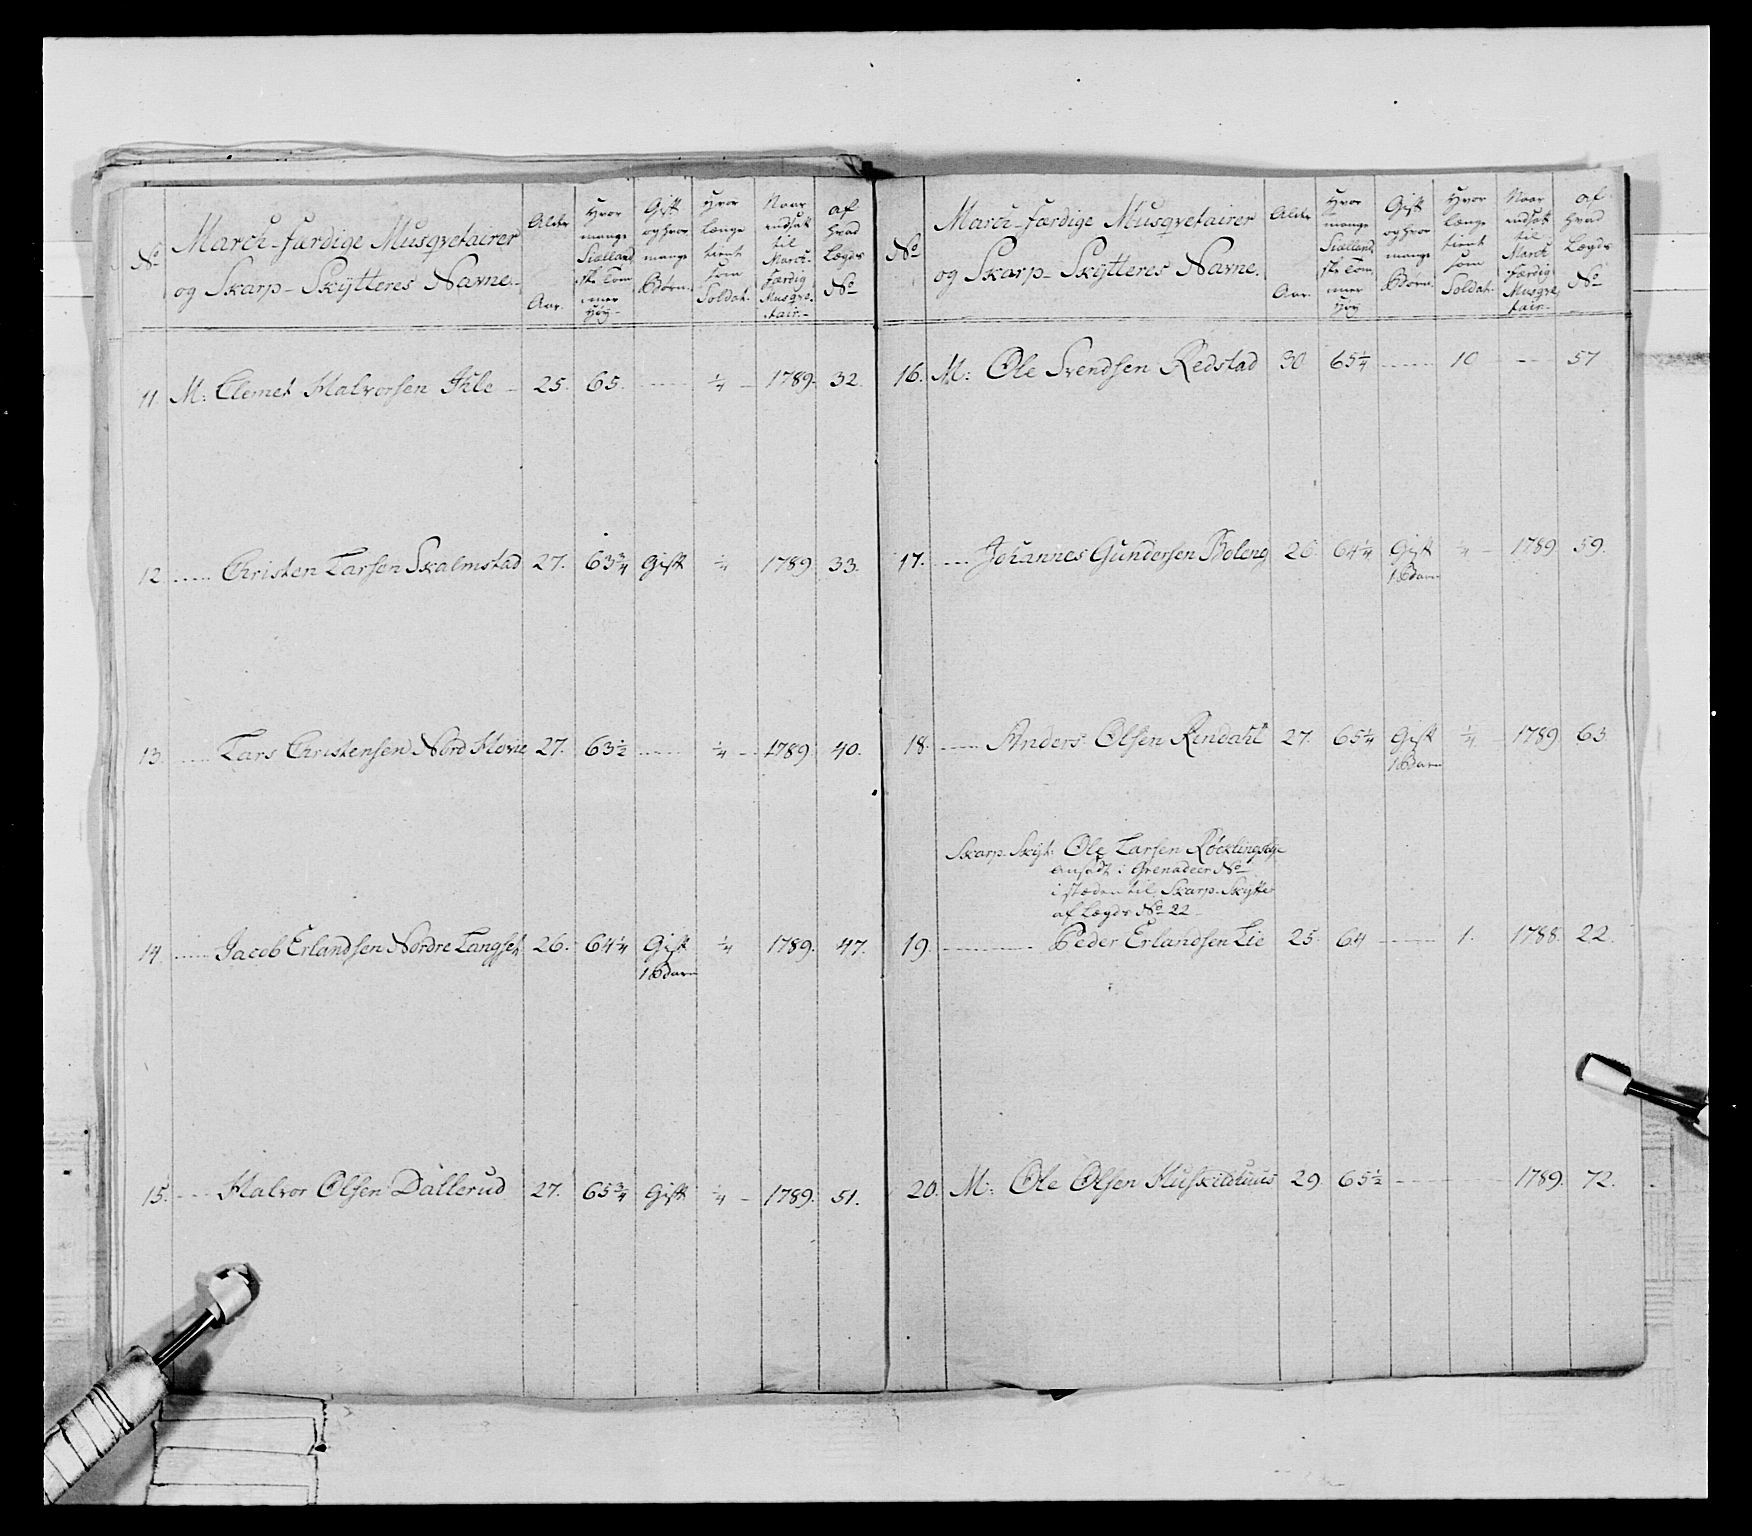 No
March-færdige Musqvetairer
og Skarp-Skÿtteres Navne.
Alder
Aar.
Hvor
mange
Siælland
ske Tom
mer
Høy
Gift
og hvor
mange
Børn.
Hvor
længe
tient
som
Soldat.
Naar
udsatt
til
March
færdig
Musqve
tair.
af
hvad
Lægds
No
11. M: Clemet Halvorsen Ihle 25. 65. ¼ 1789. 32.
12 Christen Larsen Skalmstad 27. 63¾ Gift ¼ 1789 33.
13. Lars Christensen Nord Hovie 27. 63½ ¼ 1789 40.
14. Jacob Erlandsen Nordre Langset 26. 64¼ Gift ¼ 1789. 47.
1 Barn
15. Halvor Olsen Dallerud 27. 65¾ Gift ¼ 1789. 51.
No
March-færdige Musqvetairer
og Skarp-Skÿtteres Navne.
Alder
Aar.
Hvor
mange
Siælland
ske Tom
mer
Høy
Gift
og hvor
mange
Børn.
Hvor
længe
tient
som
Soldat.
Naar
udsatt
til
March
færdig
Musqve
tair.
af
hvad
Lægds
No
16. M: Ole Svendsen Redstad 30 65¼ 10 57
17. Johannes Gundersen Boleng 26 64¼ Gift ¼ 1789 59.
1 Barn
18. Anders Olsen Rindahl 27 65¼ Gift ¼ 1789 63
1 Barn
Skarp Skyt: Ole Larsen
ansadt i Grenadeer No
i stæden til Skarp Skytte
af Lægds No 22
19. Peder Erlandsen Lie 25. 64 1. 1788. 22
20. M: Ole Olsen 29 65½ 1789. 72.